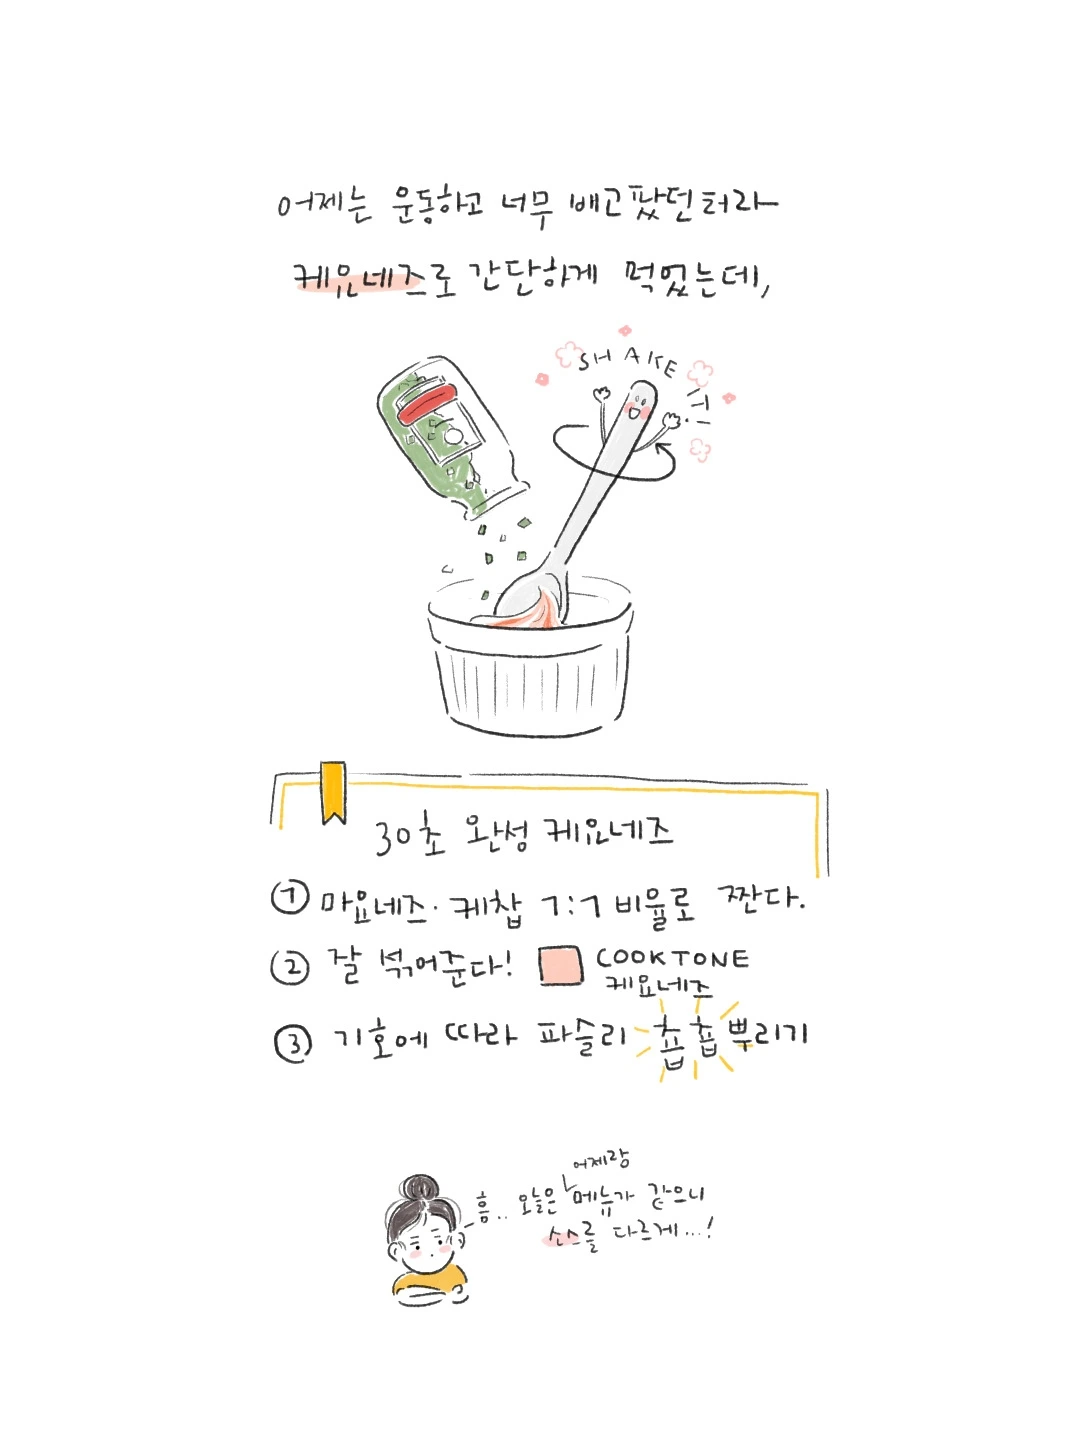 어제는 운동하고 너무 배고팠던터라
케요네즈로 간단하게 먹었는데,
SHAKE
30초 완성 케요네즈
① 마요네즈·케찹 1:1 비율로 짠다.
② 잘 섞어준다! COOKTONE
케요네즈
③ 기호에 따라 파슬리 촙촙 뿌리기
어제랑
흠.. 오늘은 메뉴가 같으니
소스를 다르게...!